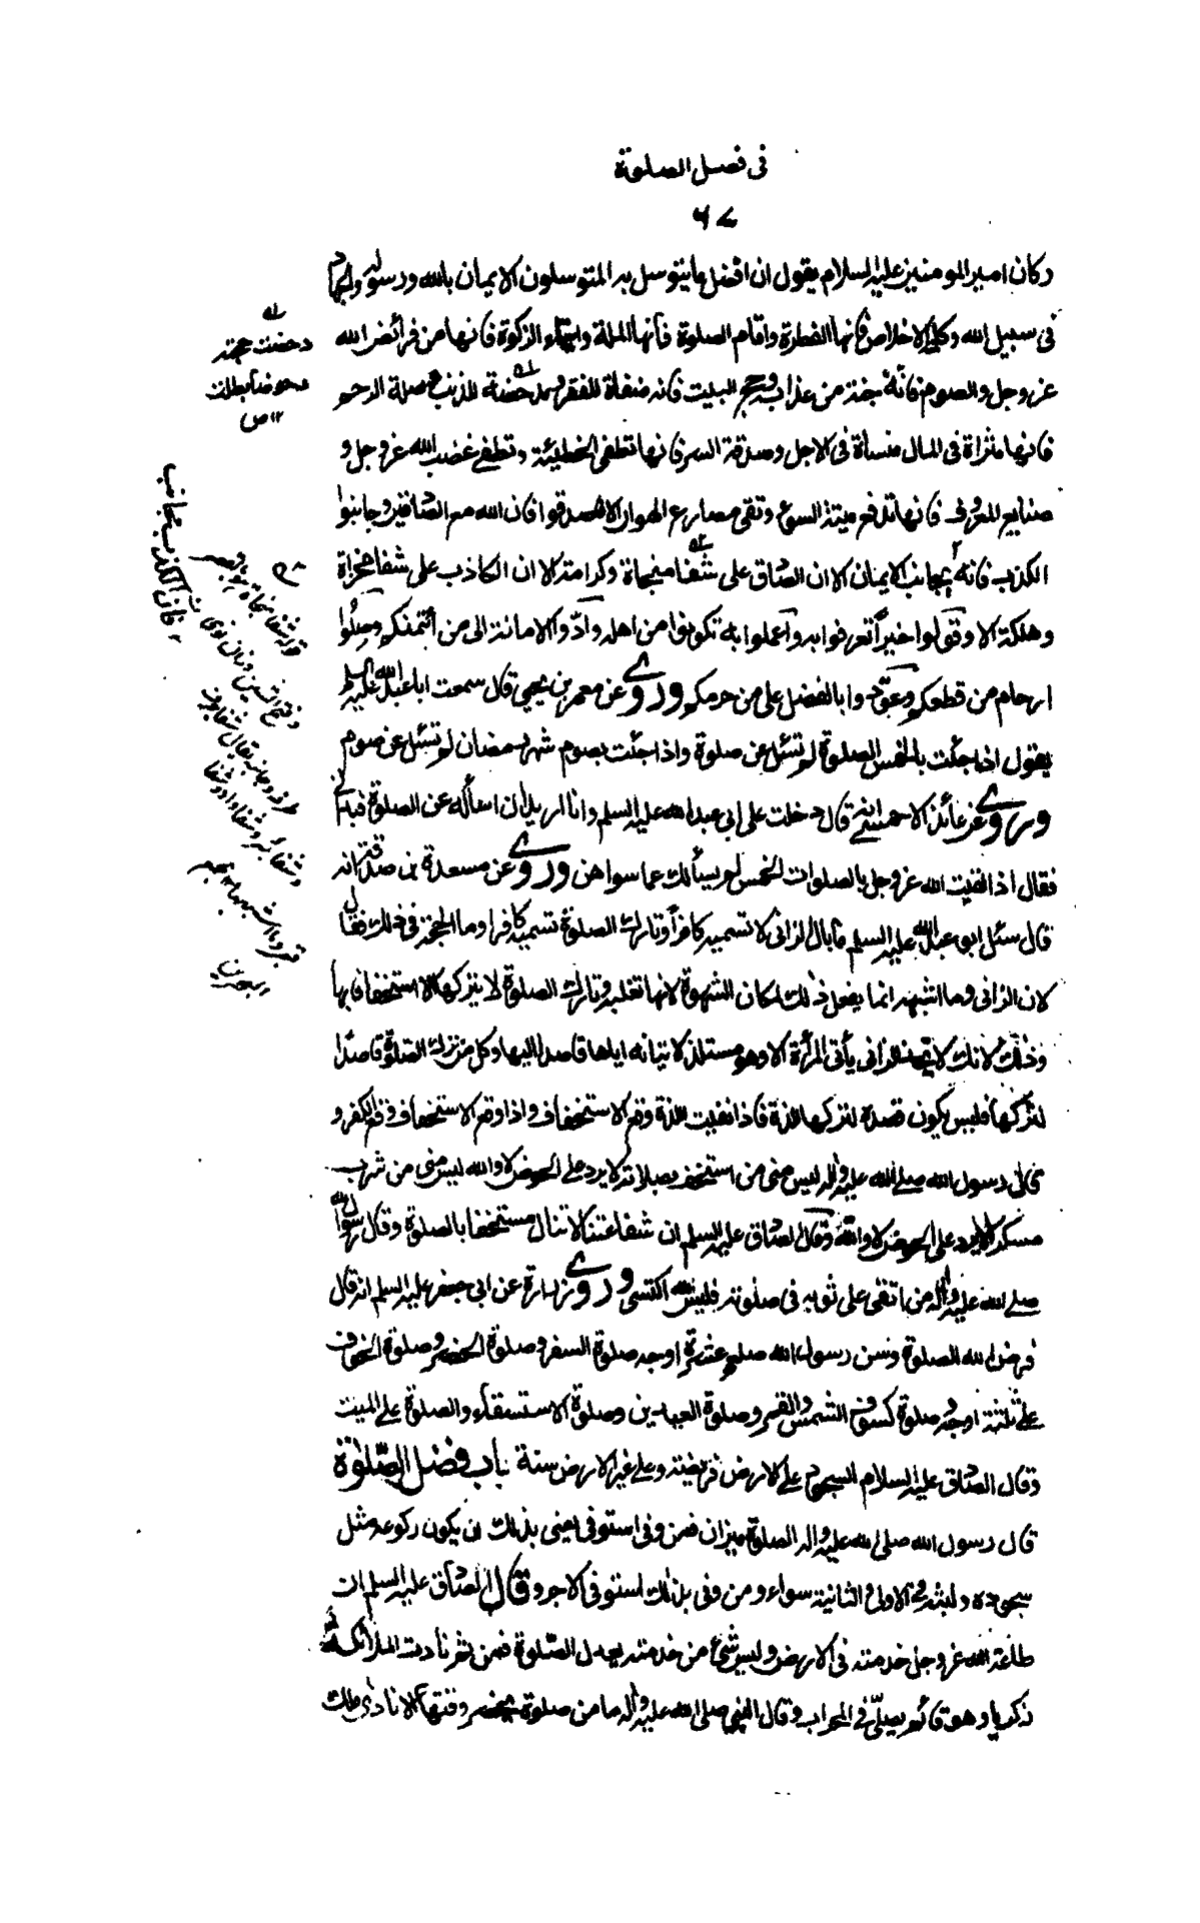 فى فضل الصلوة
٦٧
وكان امير المومنين عليه السلام يقول ان افضل ما يتوسل به المتوسلون الايمان بالله ورسوله والجهاد
فى سبيل الله وكلمة الاخلاص فانها الفطرة واقام الصلوة فانها الملة وايتاء الزكوة فانها من فرائض الله
عز وجل والصوم فانه جنة من عذابه وحج البيت فانه منفاة للفقر ومدحضة للذنب وصلة الرحم
فانها مثراة فى المال منسأة فى الاجل وصدقة السر فانها تطفئ الخطيئة وتطفئ غضب الله عز وجل و
صنايع المعروف فانها تدفع ميتة السوء وتقى مصارع الهوان الا فاصدقوا فان الله مع الصادقين وجانبوا
الكذب فانه يجانب الايمان الا ان الصادق على شفا منجاة وكرامة الا ان الكاذب على شفا مخزاة
وهلكة الا وقولوا خيرا تعرفوا به واعملوا به تكونوا من اهله وادوا الامانة الى من ائتمنكم وصلوا
ارحام من قطعكم وعودوا بالفضل على من حرمكم وروى عن معمر بن يحيى قال سمعت ابا عبد الله عليه السلم
يقول اذا جئت بالخمس الصلوة لم تسئل عن صلوة واذا جئت بصوم شهر رمضان لم تسئل عن صوم
وروى عن عائذ الاحمسى انه قال دخلت على ابى عبد الله عليه السلم وانا اريد ان اسأله عن الصلوة فبدأنى
فقال اذا لقيت الله عز وجل بالصلوات الخمس لم يسألك عما سواهن وروى عن مسعدة بن صدقة انه
قال سئل ابو عبد الله عليه السلم ما بال الزانى لا تسميه كافرا وتارك الصلوة تسميه كافرا وما الحجة فى ذلك فقال
لان الزانى وما اشبهه انما يفعل ذلك لمكان الشهوة لانها تغلبه وتارك الصلوة لا يتركها الا استخفافا بها
وذلك لانك لا تجد الزانى يأتى المرأة الا وهو مستلذ لاتيانه اياها قاصدا اليها وكل من ترك الصلوة قاصدا
لتركها فليس يكون قصده لتركها اللذة فاذا نفيت اللذة وقع الاستخفاف واذا وقع الاستخفاف وقع الكفر و
قال رسول الله صلى الله عليه واله ليس منى من استخف بصلاته لا يرد على الحوض لا والله ليس منى من شرب
مسكرا لا يرد على الحوض لا والله وقال الصادق عليه السلم ان شفاعتنا لا تنال مستخفا بالصلوة وقال رسول الله
صلى الله عليه واله من اتقى على ثوبه فى صلوته فليس لله اكتسى وروى زرارة عن ابى جعفر عليه السلم انه قال
فرض الله الصلوة وسن رسول الله صلعم عشرة اوجه صلوة السفر وصلوة الحضر وصلوة الخوف
على ثلثة اوجه وصلوة كسوف الشمس والقمر وصلوة العيدين وصلوة الاستسقاء والصلوة على الميت
وقال الصادق عليه السلام السجود على الارض فريضة وعلى غير الارض سنة باب فضل الصلوة
قال رسول الله صلى الله عليه واله الصلوة ميزان فمن وفى استوفى يعنى بذلك ان يكون ركوعه مثل
سجوده ولبثه فى الاولى والثانية سواء ومن وفى بذلك استوفى الاجر وقال الصادق عليه السلم ان
طاعة الله عز وجل خدمته فى الارض وليس شئ من خدمته يعدل الصلوة فمن ثم نادت الملائكة
زكريا وهو قائم يصلى فى المحراب وقال النبى صلى الله عليه واله ما من صلوة يحضر وقتها الا نادى ملك
دحضت حجته
١٢ ص
فان الكذب يجانب